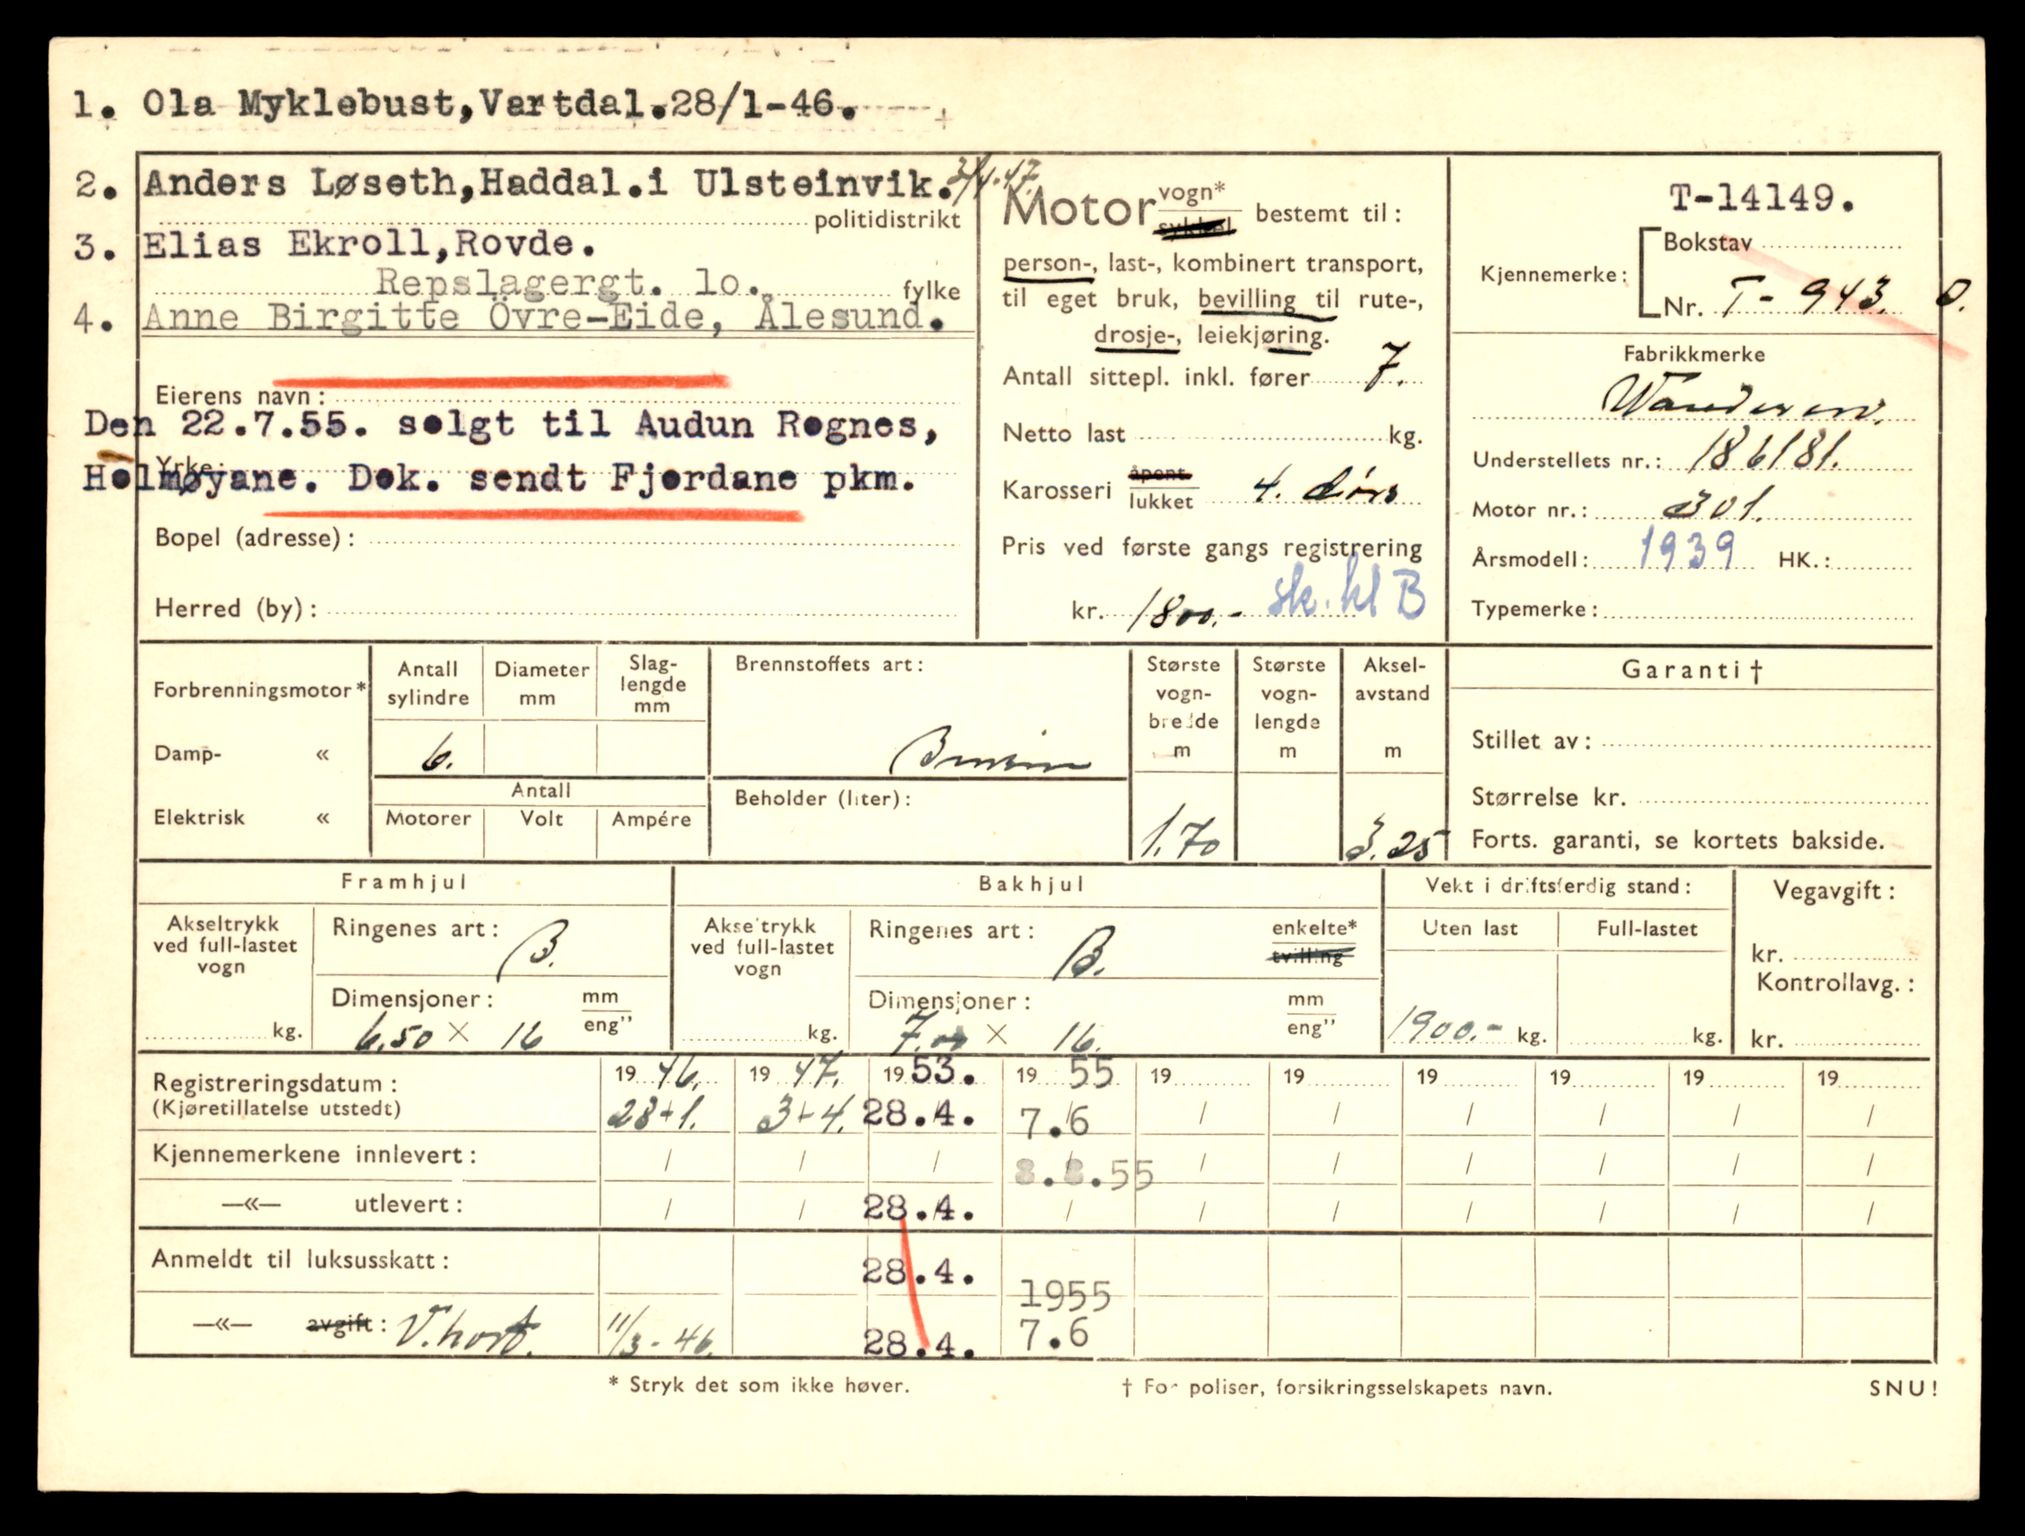 1. Ola Myklebust, Vartdal. 28/1-46.
2. Anders Løseth, Haddal. i Ulsteinvik. 3/4.47.
politidistrikt
3. Elias Ekroll, Rovde.
Repslagergt. 10. fylke
4. Anne Birgitte Övre-Eide, Ålesund.
Eierens navn:
Den 22.7.55. solgt til Audun Rognes,
Yrke:
Holmøyane. Dok. sendt Fjordane pkm.
Bopel (adresse):
Herred (by):
Motor vogn* sykkel bestemt til:
person-, last-, kombinert transport,
til eget bruk, bevilling til rute-,
drosje-, leiekjøring.
Antall sittepl. inkl. fører 7.
Netto last kg.
Karosseri åpent lukket 4. dørs
Pris ved første gangs registrering
kr. 1800.- sk. kl B
T-14149.
Kjennemerke: Bokstav
Nr. T-943. O.
Fabrikkmerke
Wanderer.
Understellets nr.: 186181.
Motor nr.: 301.
Årsmodell: 1939 HK.:
Typemerke:
Forbrenningsmotor*
Damp- «
Elektrisk «
Antall sylindre
6.
Diameter mm
Slag-lengde mm
Antall
Motorer Volt Ampére
Brennstoffets art:
Bensin
Beholder (liter):
Største vogn-bredde m
1.70
Største vogn-lengde m
Aksel-avstand m
3.25
Garanti †
Stillet av:
Størrelse kr.
Forts. garanti, se kortets bakside.
Framhjul
Akseltrykk ved full-lastet vogn
kg.
Ringenes art: B.
Dimensjoner: mm eng”
6.50 × 16
Bakhjul
Akseltrykk ved full-lastet vogn
kg.
Ringenes art: B. enkelte* tvilling
Dimensjoner: mm eng”
7.00 × 16.
Vekt i driftsferdig stand:
Uten last Full-lastet
1900.- kg. kg.
Vegavgift:
kr.
Kontrollavg.:
kr.
Registreringsdatum: 19 46. 19 47. 19 53. 19 55 19 19 19 19 19 19
(Kjøretillatelse utstedt) 28/1. 3/4. 28.4. 7.6 / / / / / /
Kjennemerkene innlevert: / / / 8.8.55 / / / / / /
—«— utlevert: / / 28.4. / / / / / / /
Anmeldt til luksusskatt: 28.4. 1955
—«— avgift: V.kort. 11/3-46. 28.4. 7.6
* Stryk det som ikke høver.
† For poliser, forsikringsselskapets navn.
SNU!